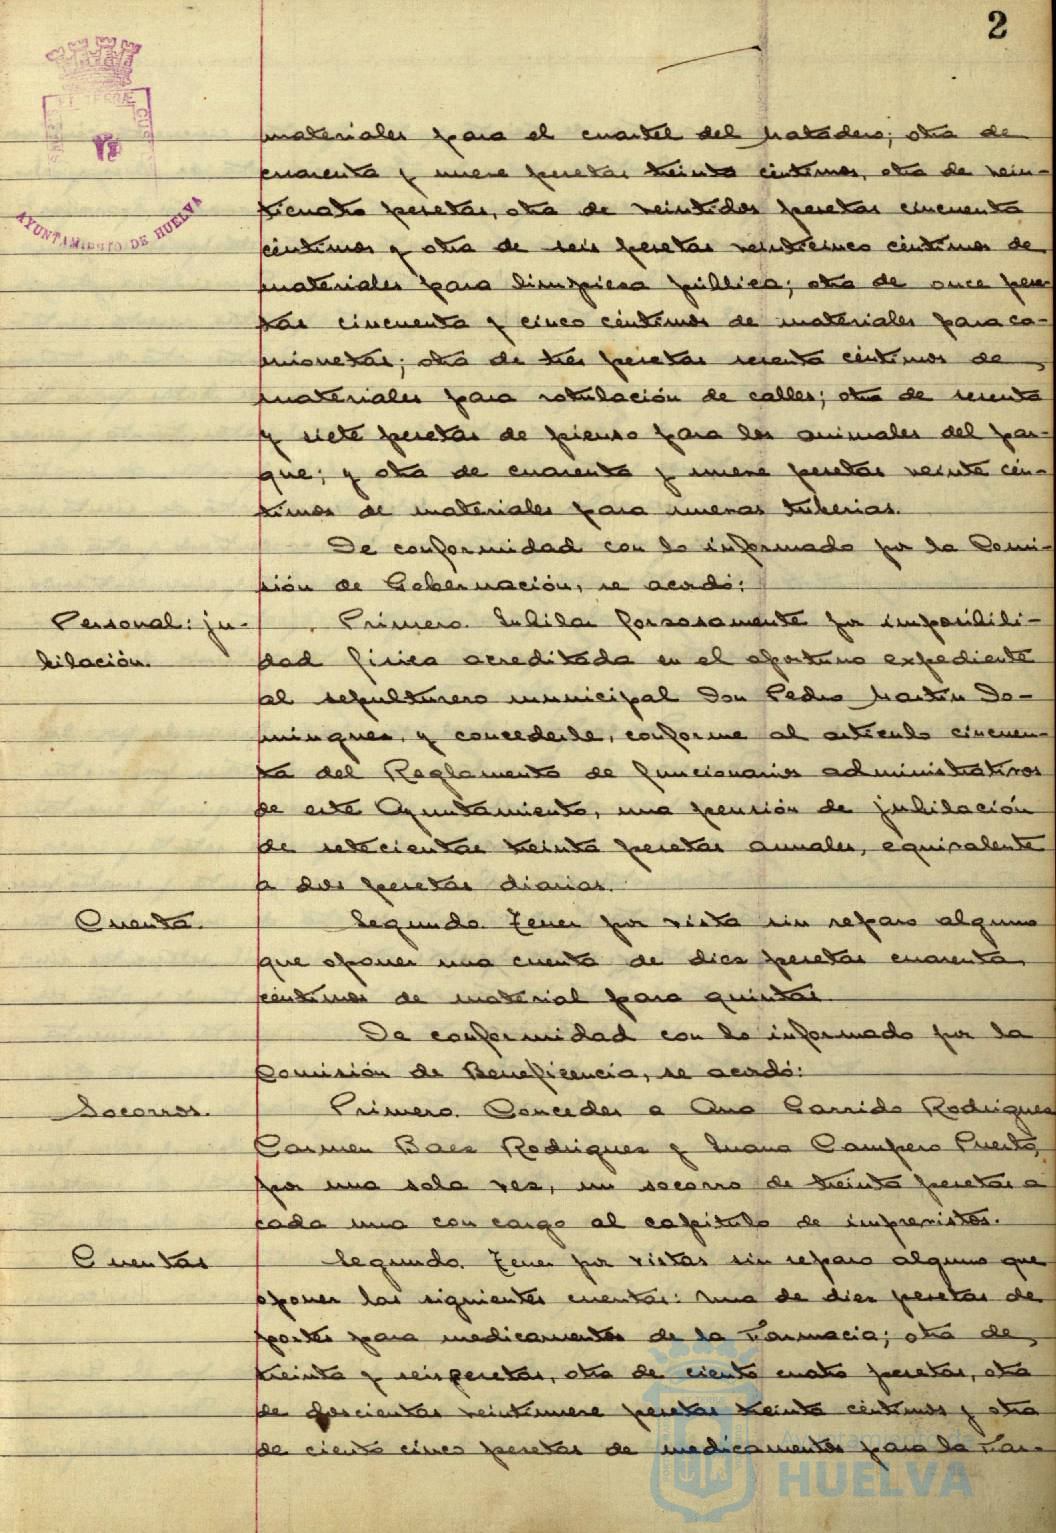 2
AYUNTAMIENTO DE HUELVA
materiales para el cuartel del Matadero; otra de
cuarenta y nueve pesetas treinta céntimos, otra de vein-
ticuatro pesetas, otra de veintidos pesetas cincuenta
céntimos y otra de seis pesetas veinticinco céntimos de
materiales para limpieza pública; otra de once pese-
tas cincuenta y cinco céntimos de materiales para ca-
mionetas; otra de tres pesetas sesenta céntimos de
materiales para rotulación de calles; otra de sesenta
y siete pesetas de pienso para los animales del par-
que; y otra de cuarenta y nueve pesetas veinte cén-
timos de materiales para nuevas tuberias.
De conformidad con lo informado por la Comi-
sión de Gobernación, se acordó:
Personal: ju-
bilación.
Primero. Jubilar forzosamente por imposibili-
dad física acreditada en el oportuno expediente
al sepulturero municipal Don Pedro Martín Do-
minguez, y concederle, conforme al artículo cincuen-
ta del Reglamento de funcionarios administrativos
de este Ayuntamiento, una pensión de jubilación
de setecientas treinta pesetas anuales, equivalente
a dos pesetas diarias.
Cuenta.
Segundo. Tener por vista sin reparo alguno
que oponer una cuenta de diez pesetas cuarenta
céntimos de material para quintas.
De conformidad con lo informado por la
Comisión de Beneficencia, se acordó:
Socorros.
Primero. Conceder a Ana Garrido Rodriguez
Carmen Baez Rodriguez y Juana Campero Puerto,
por una sola vez, un socorro de treinta pesetas a
cada una con cargo al capítulo de imprevistos.
Cuentas
Segundo. Tener por vistas sin reparo alguno que
oponer las siguientes cuentas: una de diez pesetas de
portes para medicamentos de la Farmacia; otra de
treinta y seis pesetas, otra de ciento cuatro pesetas, otra
de doscientas veintinueve pesetas treinta céntimos y otra
de ciento cinco pesetas de medicamentos para la Far-
Ayuntamiento de
HUELVA